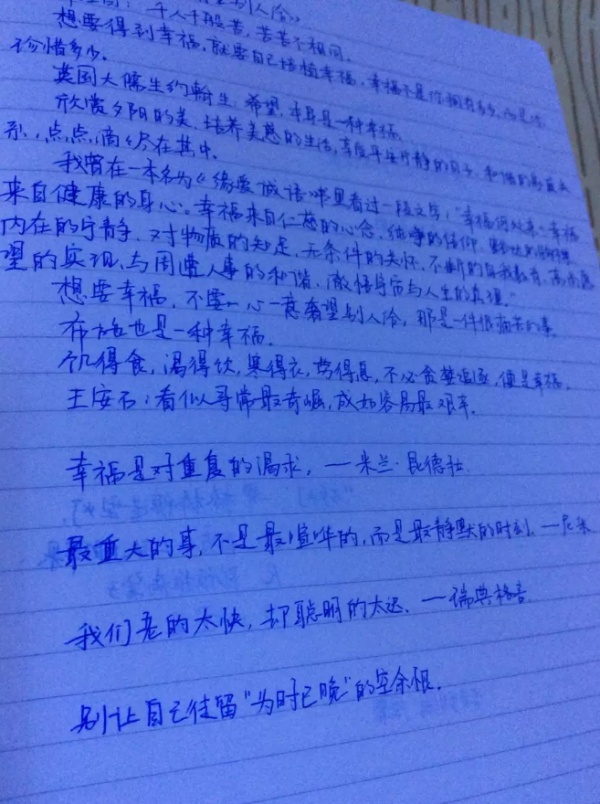 千人千般苦，苦苦不相同。
想要得到幸福，就要自己培植幸福，幸福不是你拥有多少，而是你
珍惜多少。
英国大儒生约翰生，希望，本身是一种幸福。
欣赏夕阳的美，培养美感的生活，享受平安宁静的日子，和谐的
点点滴滴尽在其中。
我曾在一本名为《缘爱诚语》书里看过一段文字，“幸福何处来？幸福
来自健康的身心。幸福来自仁慈的心念，纯净的信仰，
内在的宁静，对物质的知足，无条件的关怀，不断的自我教育，高尚愿
望的实现，与周遭人事的和谐，彻悟宇宙与人生的真理。”
想要幸福，不要一心一意奢望别人给，那是一件很痛苦的事。
布施也是一种幸福。
饥得食，渴得饮，寒得衣，劳得息，不必贪婪追逐，便是幸福。
王安石：看似寻常最奇崛，成如容易最艰辛。
幸福是对重复的渴求，—米兰·昆德拉
最重大的事，不是最喧哗的，而是最静默的时刻。—尼采
我们老的太快，却聪明的太迟。—瑞典格言
别让自己徒留“为时已晚”的空余恨。